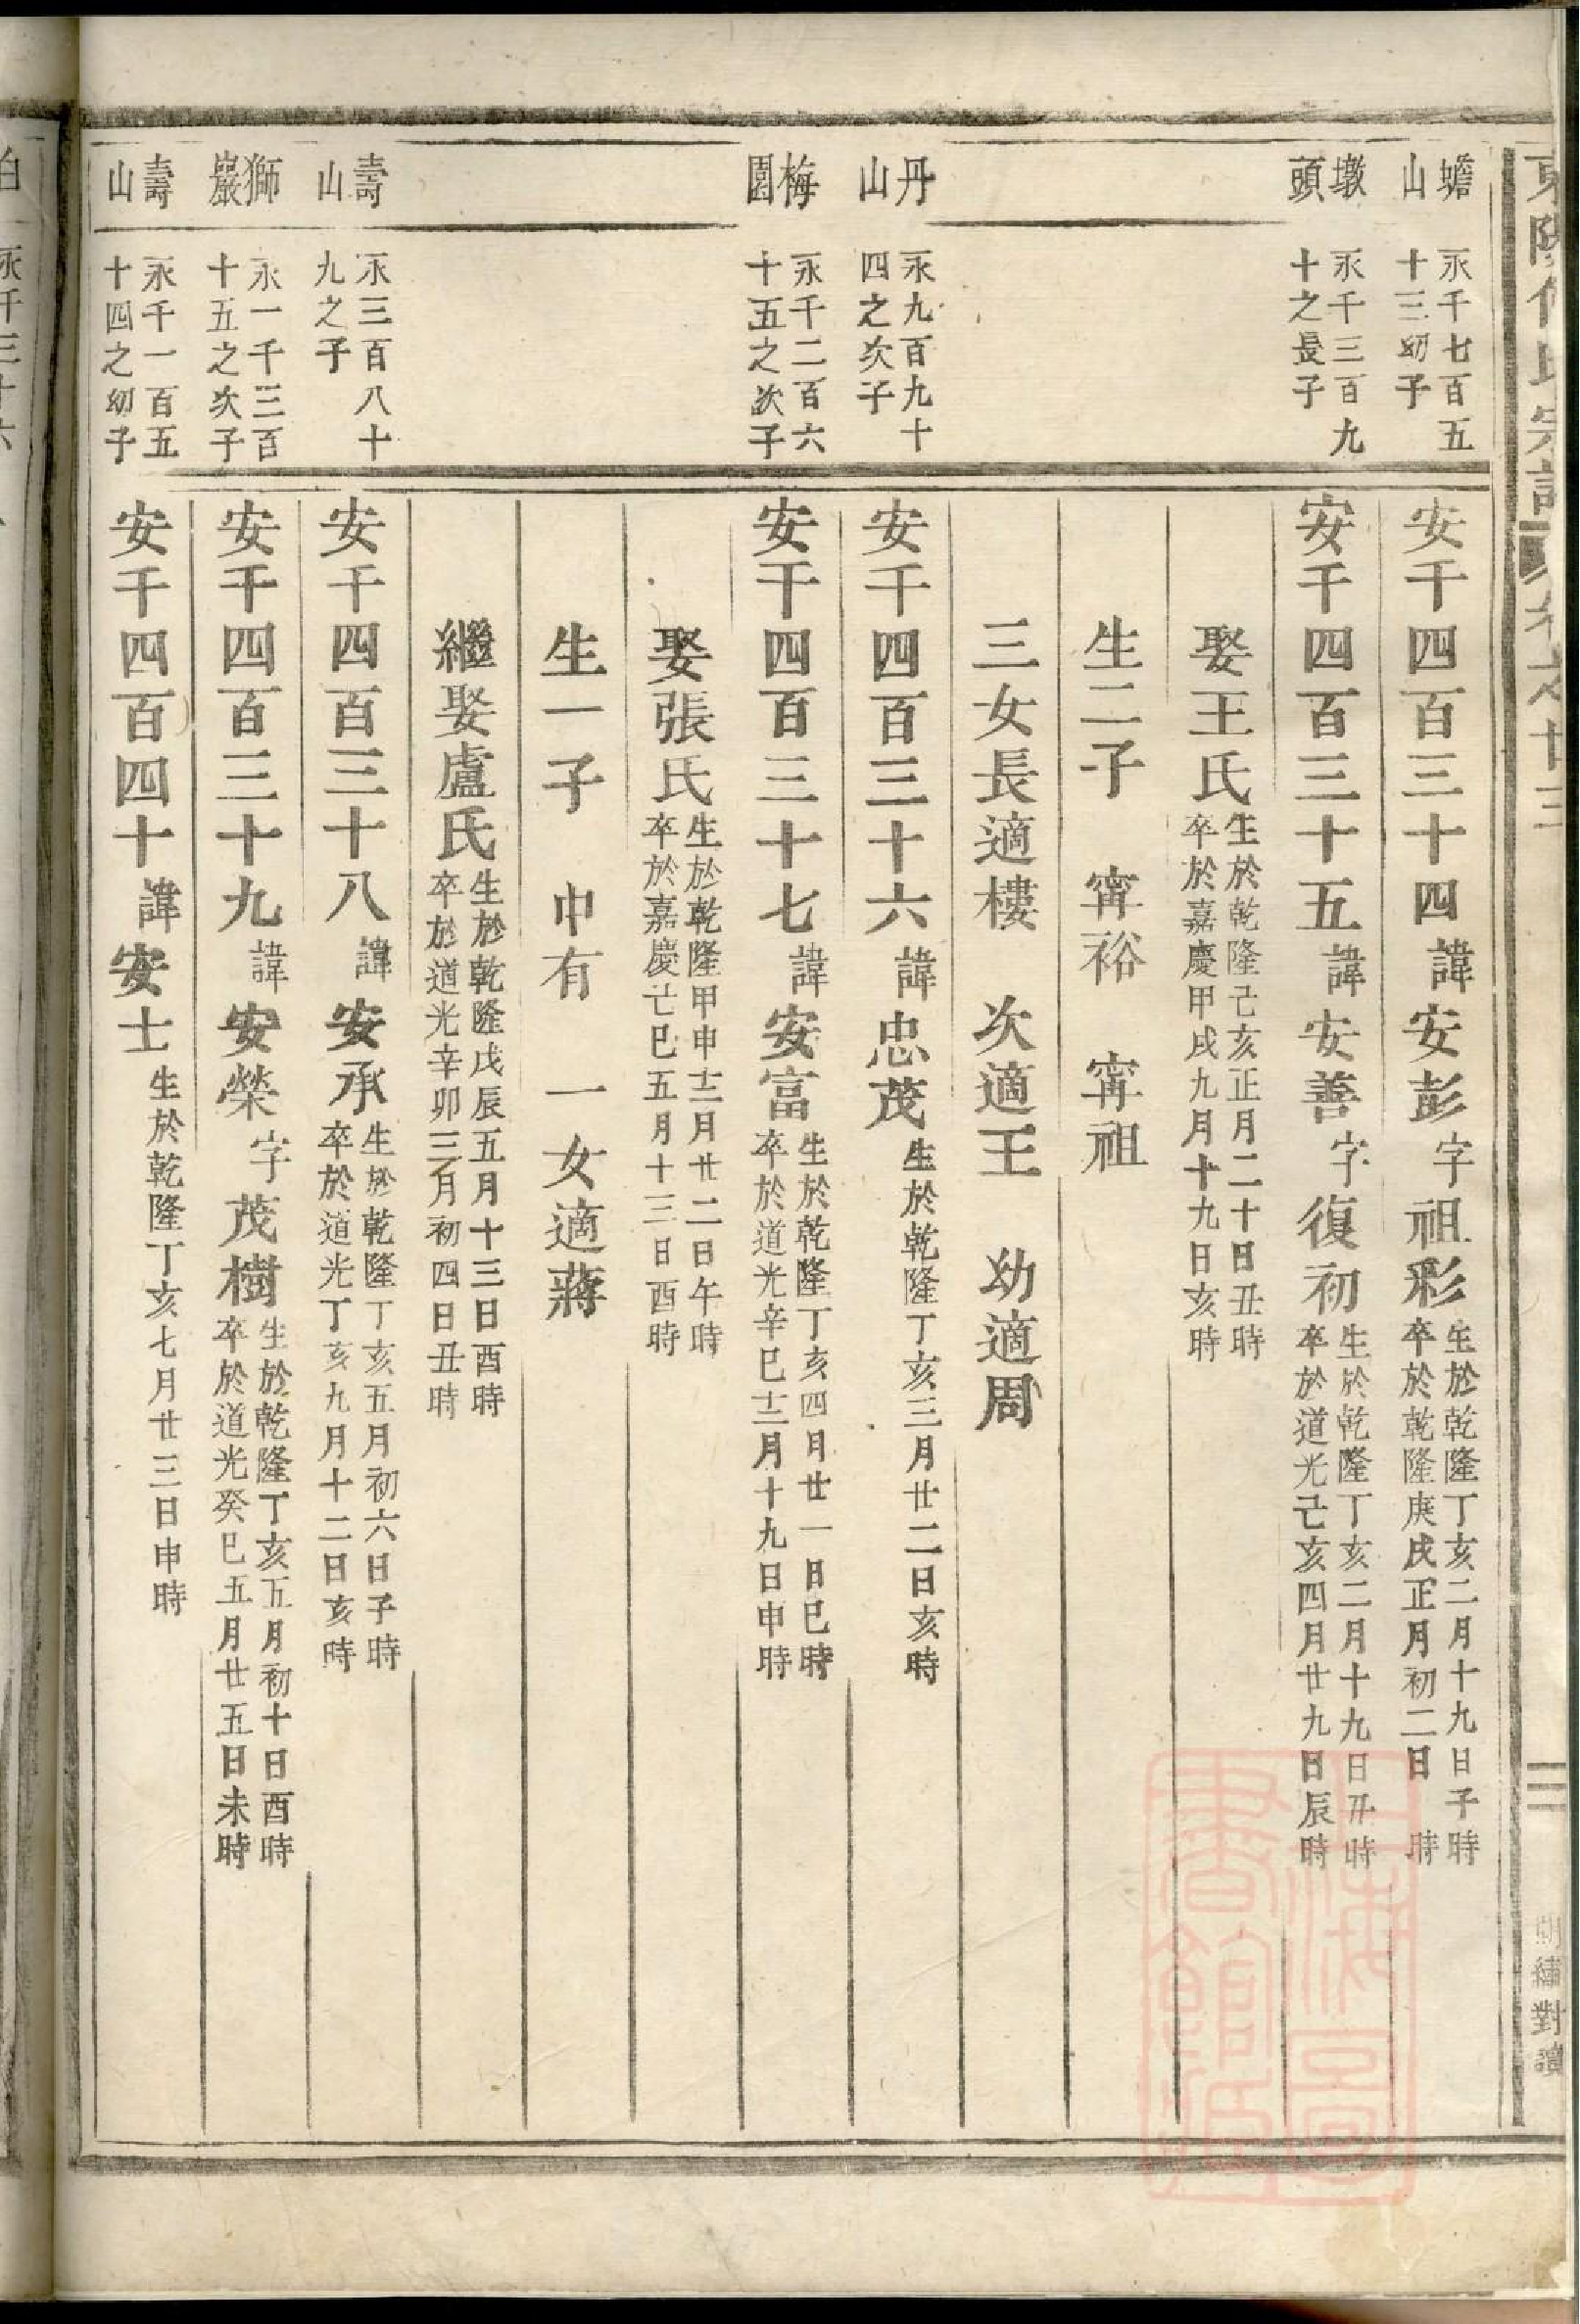 蟾山
永千七百五十三幼子
安千四百三十四諱安彭字祖彩生於乾隆丁亥二月十九日子時卒於乾隆庚戌正月初二日 時
墩頭
永千三百九十之長子
安千四百三十五諱安善字復初生於乾隆丁亥二月十九日丑時卒於道光己亥四月廿九日辰時
娶王氏生於乾隆己亥正月二十日丑時卒於嘉慶甲戌九月十九日亥時
生二子 甯裕 甯祖
三女長適樓 次適王 幼適周
丹山
永九百九十四之次子
安千四百三十六諱忠茂生於乾隆丁亥三月廿二日亥時
梅園
永千二百六十五之次子
安千四百三十七諱安富生於乾隆丁亥四月廿一日巳時卒於道光辛巳十二月十九日申時
娶張氏生於乾隆甲申十二月廿二日午時卒於嘉慶己巳五月十三日酉時
生一子 巾有 一女適蔣
繼娶盧氏生於乾隆戊辰五月十三日酉時卒於道光辛卯三月初四日丑時
壽山
永三百八十九之子
安千四百三十八諱安承生於乾隆丁亥五月初六日子時卒於道光丁亥九月十二日亥時
獅巖
永一千三百十五之次子
安千四百三十九諱安榮字茂樹生於乾隆丁亥五月初十日酉時卒於道光癸巳五月廿五日未時
壽山
永千一百五十四之幼子
安千四百四十諱安士生於乾隆丁亥七月廿三日申時